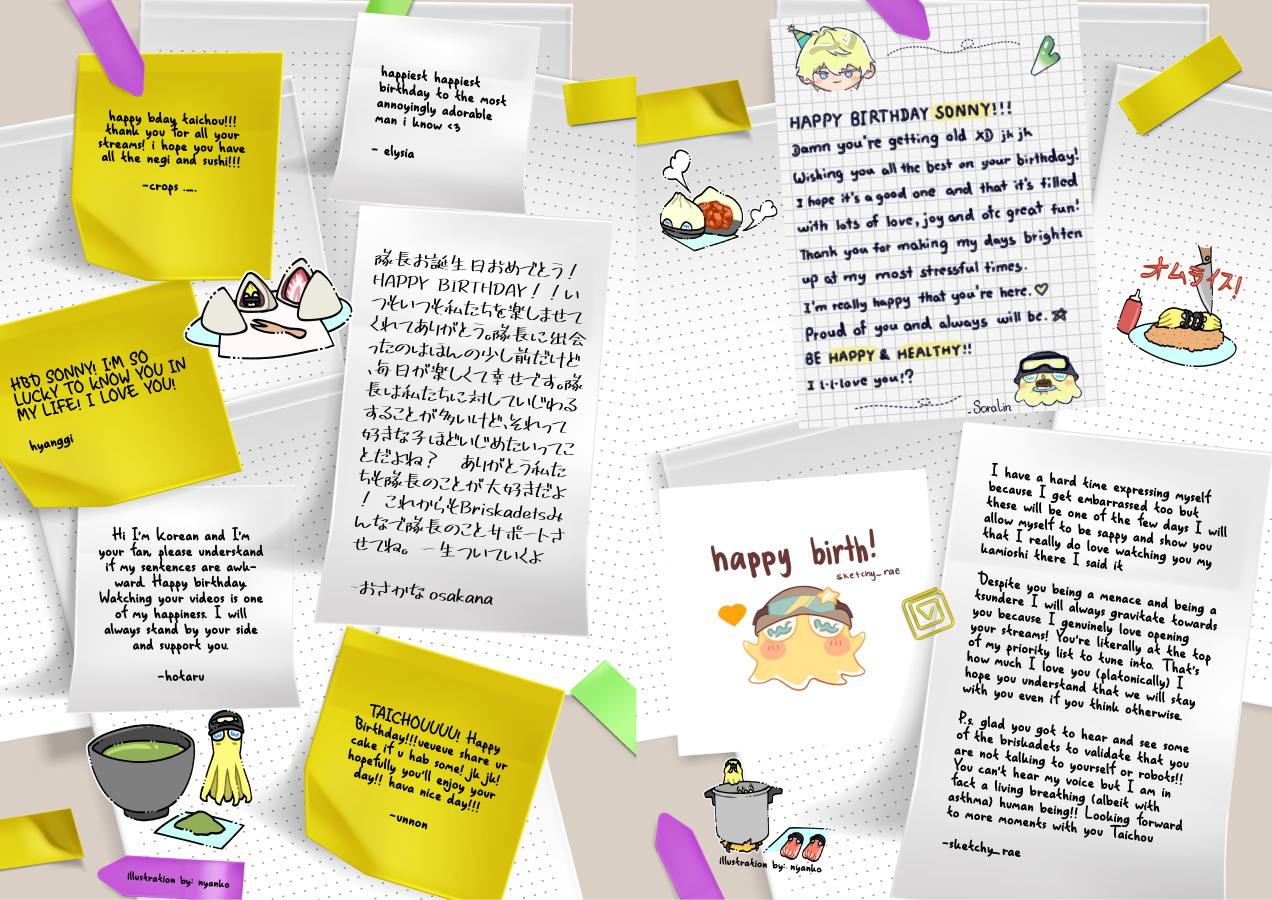 happy bday taichou!!!
thank you for all your
streams! i hope you have
all the negi and sushi!!!
-crops ._.
happiest happiest
birthday to the most
annoyingly adorable
man i know <3
- elysia
HBD SONNY! I'M SO
LUCKY TO KNOW YOU IN
MY LIFE! I LOVE YOU!
hyanggi
隊長お誕生日おめでとう！
HAPPY BIRTHDAY！！い
つもいつも私たちを楽しませて
くれてありがとう。隊長に出会
ったのはほんの少し前だけど
、毎日が楽しくて幸せです。隊
長は私たちに対していじわる
することが多いけど、それって
好きな子ほどいじめたいってこ
とだよね？　ありがとう私た
ちも隊長のことが大好きだよ
！　これからもBriskadetsみ
んなで隊長のことサポートさ
せてね。一生ついていくよ
-おさかな osakana
Hi I'm Korean and I'm
your fan, please understand
if my sentences are awk-
ward. Happy birthday.
Watching your videos is one
of my happiness. I will
always stand by your side
and support you.
-hotaru
TAICHOUUUU! Happy
Birthday!!!ueueue share ur
cake if u hab some! jk jk!
hopefully you'll enjoy your
day!! hava nice day!!!
-unnon
illustration by: nyanko
HAPPY BIRTHDAY SONNY!!!
Damn you're getting old XD jk jk
Wishing you all the best on your birthday!
I hope it's a good one and that it's filled
with lots of love, joy and ofc great fun!
Thank you for making my days brighten
up at my most stressful times.
I'm really happy that you're here.
Proud of you and always will be.
BE HAPPY & HEALTHY!!
I l-l-love you!?
-Soralin
オムライス!
happy birth!
sketchy_rae
I have a hard time expressing myself
because I get embarrassed too but
these will be one of the few days I will
allow myself to be sappy and show you
that I really do love watching you my
kamioshi there I said it
Despite you being a menace and being a
tsundere I will always gravitate towards
you because I genuinely love opening
your streams! You're literally at the top
of my priority list to tune into. That's
how much I love you (platonically) I
hope you understand that we will stay
with you even if you think otherwise.
P.s. glad you got to hear and see some
of the briskadets to validate that you
are not talking to yourself or robots!!
You can't hear my voice but I am in
fact a living breathing (albeit with
asthma) human being!! Looking forward
to more moments with you Taichou
-sketchy_rae
illustration by: nyanko